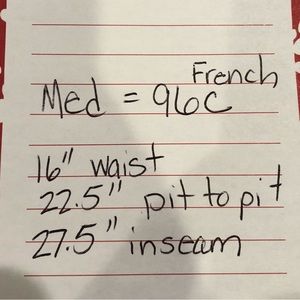 French
Med = 96C
16" waist
22.5" pit to pit
27.5" inseam